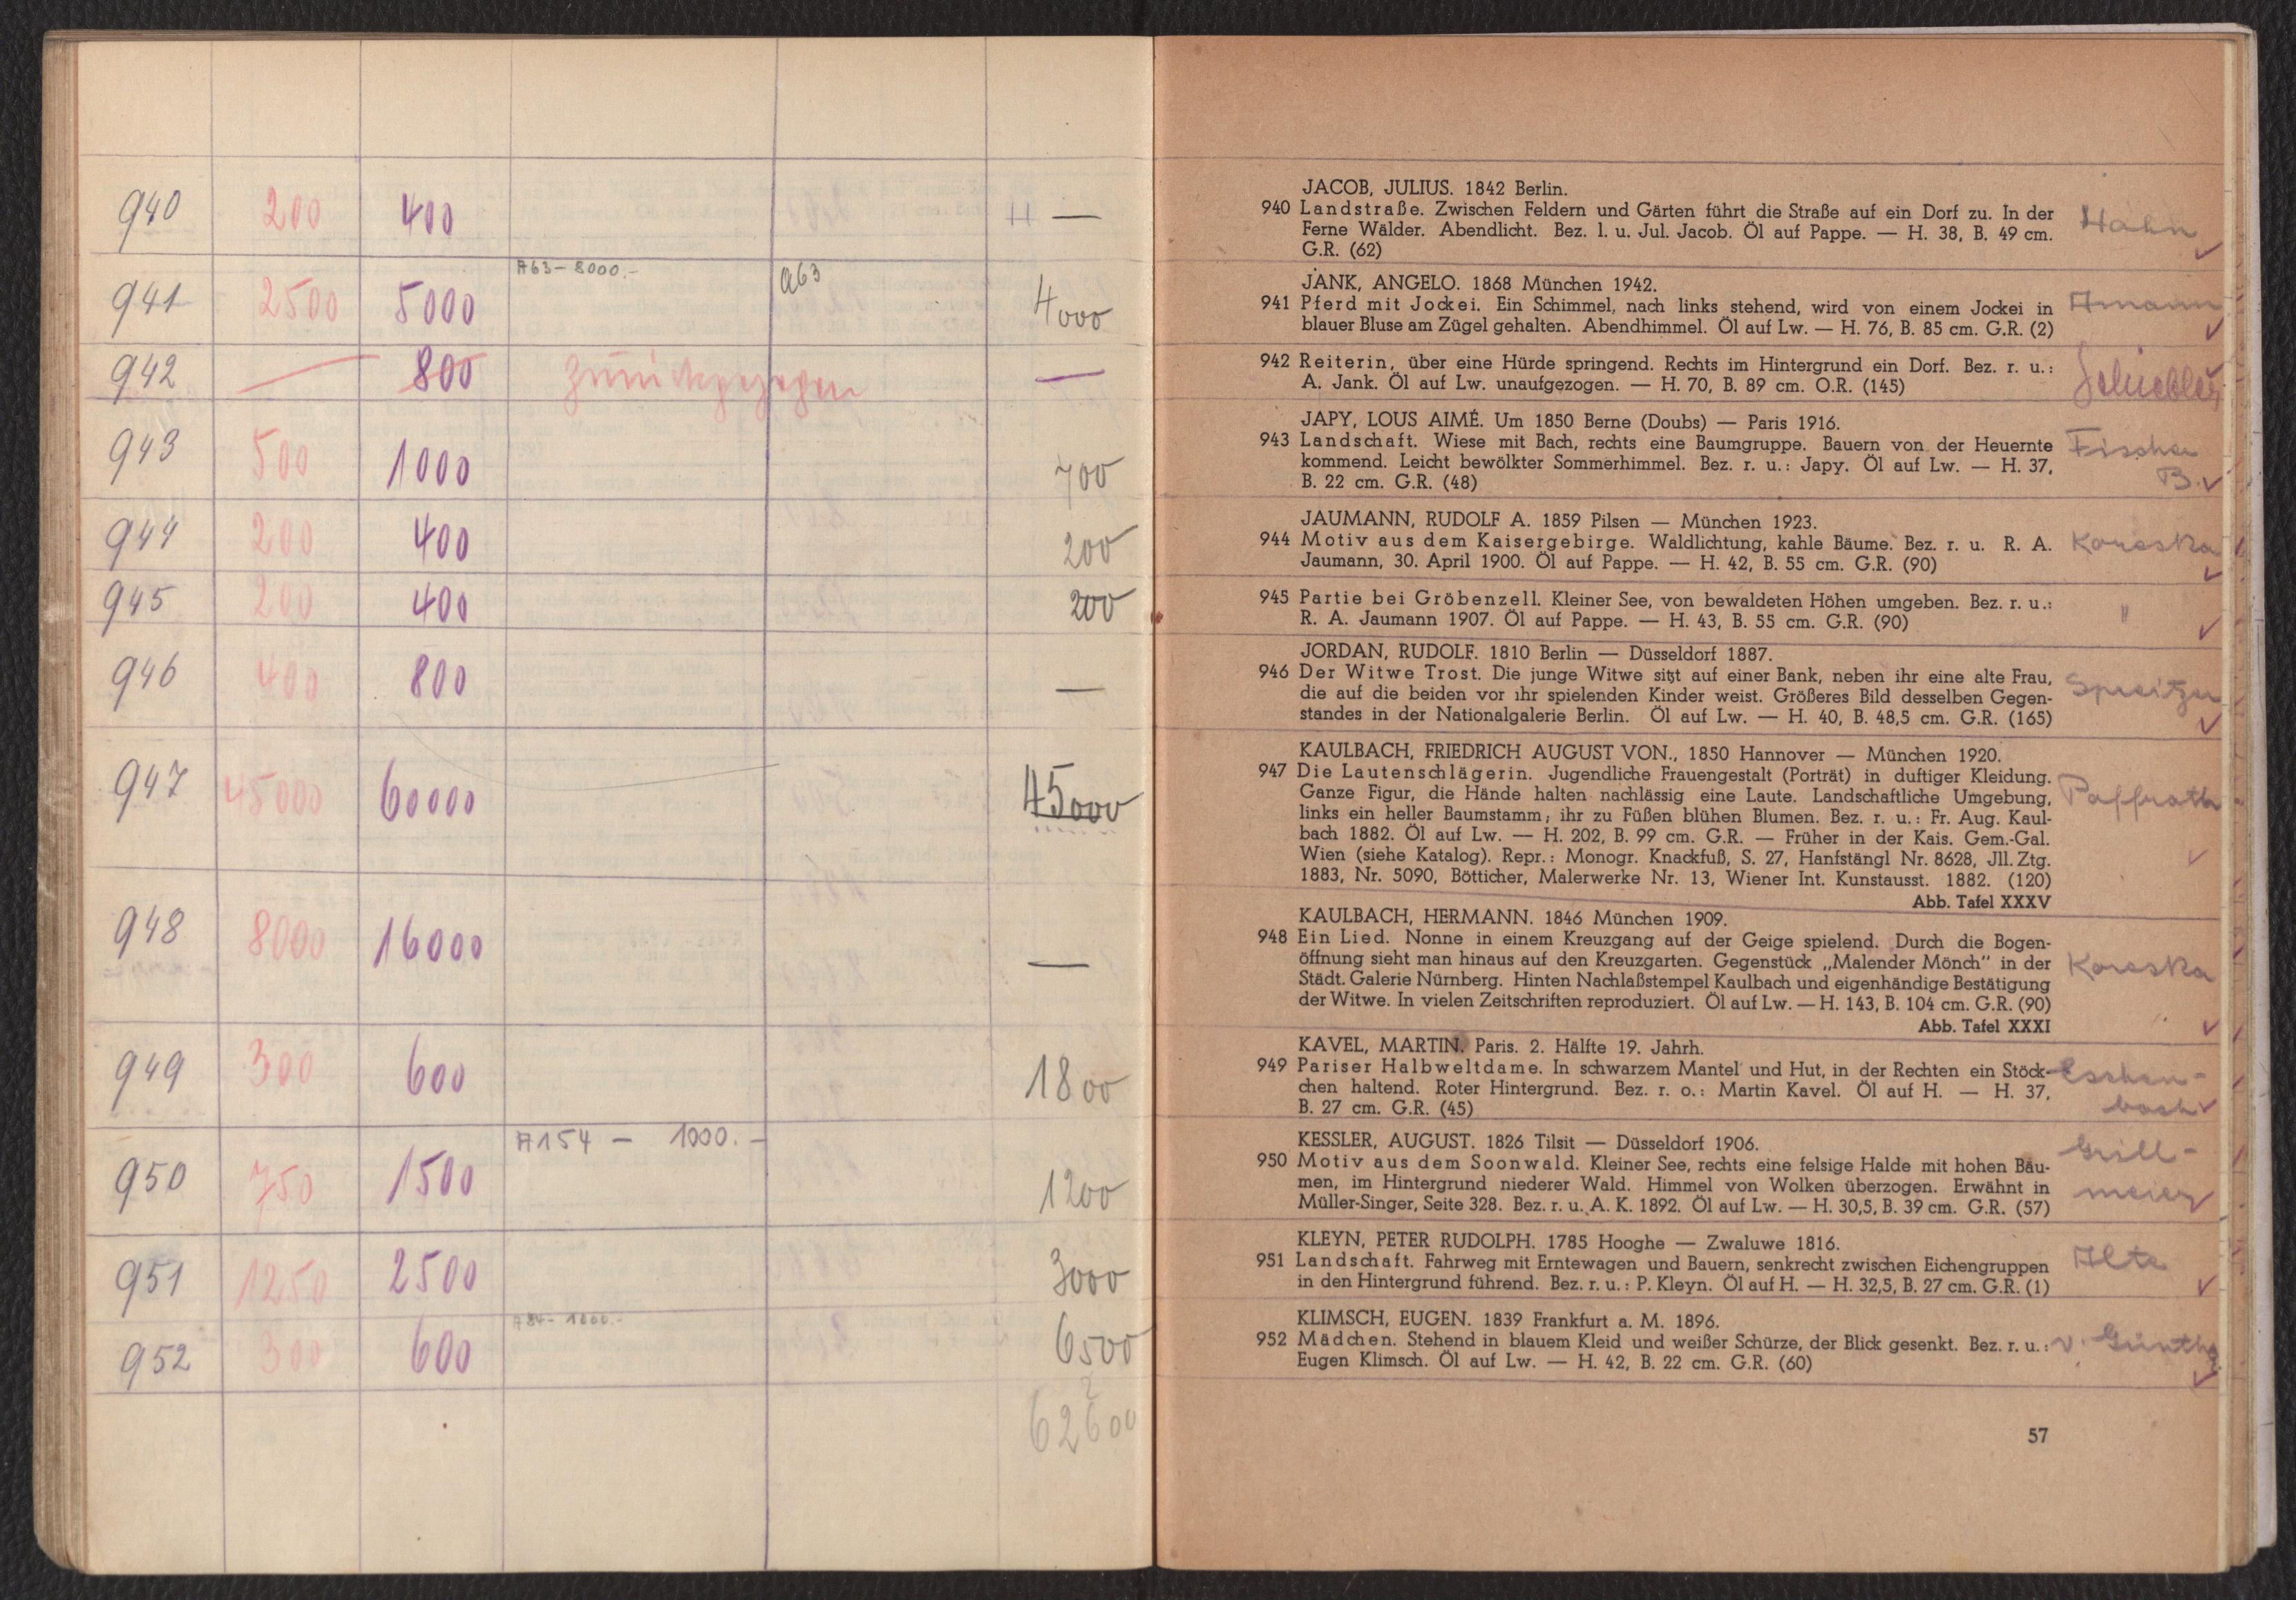 940 200 400 —
A63 - 8000.- a63
941 2500 5000 4000
942 — 800 zurückgezogen —
943 500 1000 700
944 200 400 200
945 200 400 200
946 400 800 —
947 45000 60000 45000
948 8000 16000 —
949 300 600 1800
A154 - 1000.-
950 750 1500 1200
951 1250 2500 3000
A84- 1000.-
952 300 600 6500
62600
JACOB, JULIUS. 1842 Berlin.
940 Landstraße. Zwischen Feldern und Gärten führt die Straße auf ein Dorf zu. In der Hahn
Ferne Wälder. Abendlicht. Bez. l. u. Jul. Jacob. Öl auf Pappe. — H. 38, B. 49 cm.
G.R. (62)
JANK, ANGELO. 1868 München 1942.
941 Pferd mit Jockei. Ein Schimmel, nach links stehend, wird von einem Jockei in Amann
blauer Bluse am Zügel gehalten. Abendhimmel. Öl auf Lw. — H. 76, B. 85 cm. G.R. (2)
942 Reiterin, über eine Hürde springend. Rechts im Hintergrund ein Dorf. Bez. r. u.:
A. Jank. Öl auf Lw. unaufgezogen. — H. 70, B. 89 cm. O.R. (145)
JAPY, LOUS AIMÉ. Um 1850 Berne (Doubs) — Paris 1916.
943 Landschaft. Wiese mit Bach, rechts eine Baumgruppe. Bauern von der Heuernte Fischer
kommend. Leicht bewölkter Sommerhimmel. Bez. r. u.: Japy. Öl auf Lw. — H. 37,
B. 22 cm. G.R. (48) B.
JAUMANN, RUDOLF A. 1859 Pilsen — München 1923.
944 Motiv aus dem Kaisergebirge. Waldlichtung, kahle Bäume. Bez. r. u. R. A. Koreska
Jaumann, 30. April 1900. Öl auf Pappe. — H. 42, B. 55 cm. G.R. (90)
945 Partie bei Gröbenzell. Kleiner See, von bewaldeten Höhen umgeben. Bez. r. u.: "
R. A. Jaumann 1907. Öl auf Pappe. — H. 43, B. 55 cm. G.R. (90)
JORDAN, RUDOLF. 1810 Berlin — Düsseldorf 1887.
946 Der Witwe Trost. Die junge Witwe sitzt auf einer Bank, neben ihr eine alte Frau, Spreitzer
die auf die beiden vor ihr spielenden Kinder weist. Größeres Bild desselben Gegen-
standes in der Nationalgalerie Berlin. Öl auf Lw. — H. 40, B. 48,5 cm. G.R. (165)
KAULBACH, FRIEDRICH AUGUST VON., 1850 Hannover — München 1920.
947 Die Lautenschlägerin. Jugendliche Frauengestalt (Porträt) in duftiger Kleidung.
Ganze Figur, die Hände halten nachlässig eine Laute. Landschaftliche Umgebung, Paffrath
links ein heller Baumstamm; ihr zu Füßen blühen Blumen. Bez. r. u.: Fr. Aug. Kaul-
bach 1882. Öl auf Lw. — H. 202, B. 99 cm. G.R. — Früher in der Kais. Gem.-Gal.
Wien (siehe Katalog). Repr.: Monogr. Knackfuß, S. 27, Hanfstängl Nr. 8628, Jll. Ztg.
1883, Nr. 5090, Bötticher, Malerwerke Nr. 13, Wiener Int. Kunstausst. 1882. (120)
Abb. Tafel XXXV
KAULBACH, HERMANN. 1846 München 1909.
948 Ein Lied. Nonne in einem Kreuzgang auf der Geige spielend. Durch die Bogen-
öffnung sieht man hinaus auf den Kreuzgarten. Gegenstück „Malender Mönch" in der Koreska
Städt. Galerie Nürnberg. Hinten Nachlaßstempel Kaulbach und eigenhändige Bestätigung
der Witwe. In vielen Zeitschriften reproduziert. Öl auf Lw. — H. 143, B. 104 cm. G.R. (90)
Abb. Tafel XXXI
KAVEL, MARTIN. Paris. 2. Hälfte 19. Jahrh.
949 Pariser Halbweltdame. In schwarzem Mantel und Hut, in der Rechten ein Stöck- Eschen-
chen haltend. Roter Hintergrund. Bez. r. o.: Martin Kavel. Öl auf H. — H. 37, bach
B. 27 cm. G.R. (45)
KESSLER, AUGUST. 1826 Tilsit — Düsseldorf 1906. Grill-
950 Motiv aus dem Soonwald. Kleiner See, rechts eine felsige Halde mit hohen Bäu-
men, im Hintergrund niederer Wald. Himmel von Wolken überzogen. Erwähnt in meier
Müller-Singer, Seite 328. Bez. r. u. A. K. 1892. Öl auf Lw. — H. 30,5, B. 39 cm. G.R. (57)
KLEYN, PETER RUDOLPH. 1785 Hooghe — Zwaluwe 1816.
951 Landschaft. Fahrweg mit Erntewagen und Bauern, senkrecht zwischen Eichengruppen
in den Hintergrund führend. Bez. r. u.: P. Kleyn. Öl auf H. — H. 32,5, B. 27 cm. G.R. (1)
KLIMSCH, EUGEN. 1839 Frankfurt a. M. 1896.
952 Mädchen. Stehend in blauem Kleid und weißer Schürze, der Blick gesenkt. Bez. r. u.: v. Günther
Eugen Klimsch. Öl auf Lw. — H. 42, B. 22 cm. G.R. (60)
57